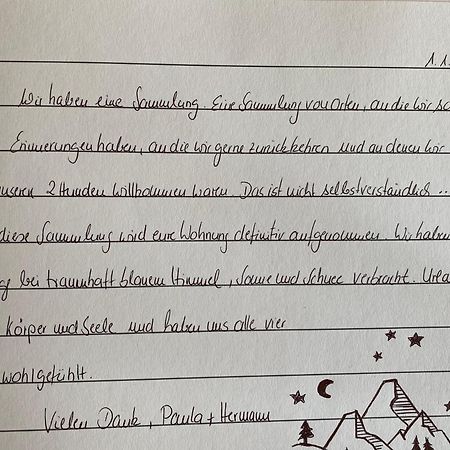 1.1.
Wir haben eine Sammlung. Eine Sammlung von Orten, an die wir sc
Erinnerungen haben, an die wir gerne zurückkehren und an denen wir
unseren 2 Hunden willkommen waren. Das ist nicht selbstverständlich ..
diese Sammlung wird eure Wohnung definitiv aufgenommen. Wir haben
g bei traumhaft blauem Himmel, Sonne und Schnee verbracht. Urla
körper und Seele und haben uns alle vier
wohlgefühlt.
Vielen Dank, Paula + Hermann